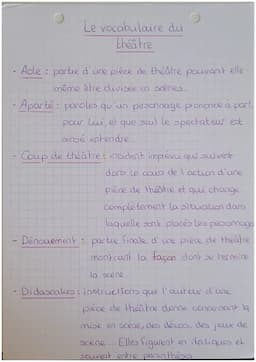 Le vocabulaire du
théâtre
- Acte : partie d'une pièce de théâtre pouvant elle
même être divisée en scènes.
- Aparté : paroles qu'un personnage prononce à part
pour lui, et que seul le spectateur est
censé entendre.
- Coup de théâtre : incident imprévu qui survient
dans le cours de l'action d'une
pièce de théâtre et qui change
complètement la situation dans
laquelle sont placés les personnages
- Dénouement : partie finale d'une pièce de théâtre
montrant la façon dont se termine
la scène.
- Didascalies : Instructions que l'auteur d'une
pièce de théâtre donne concernant la
mise en scène, des décors, des jeux de
scène... Elles figurent en italiques et
souvent entre parenthèses